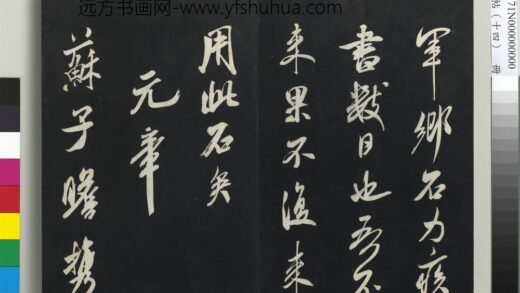 远方书画网-www.yfshuhua.com
軍鄉石力疾
書數日也吾不
來果不復來
用此石矣
元章
蘇子瞻攜
71N000000000
帖（十四） 冊